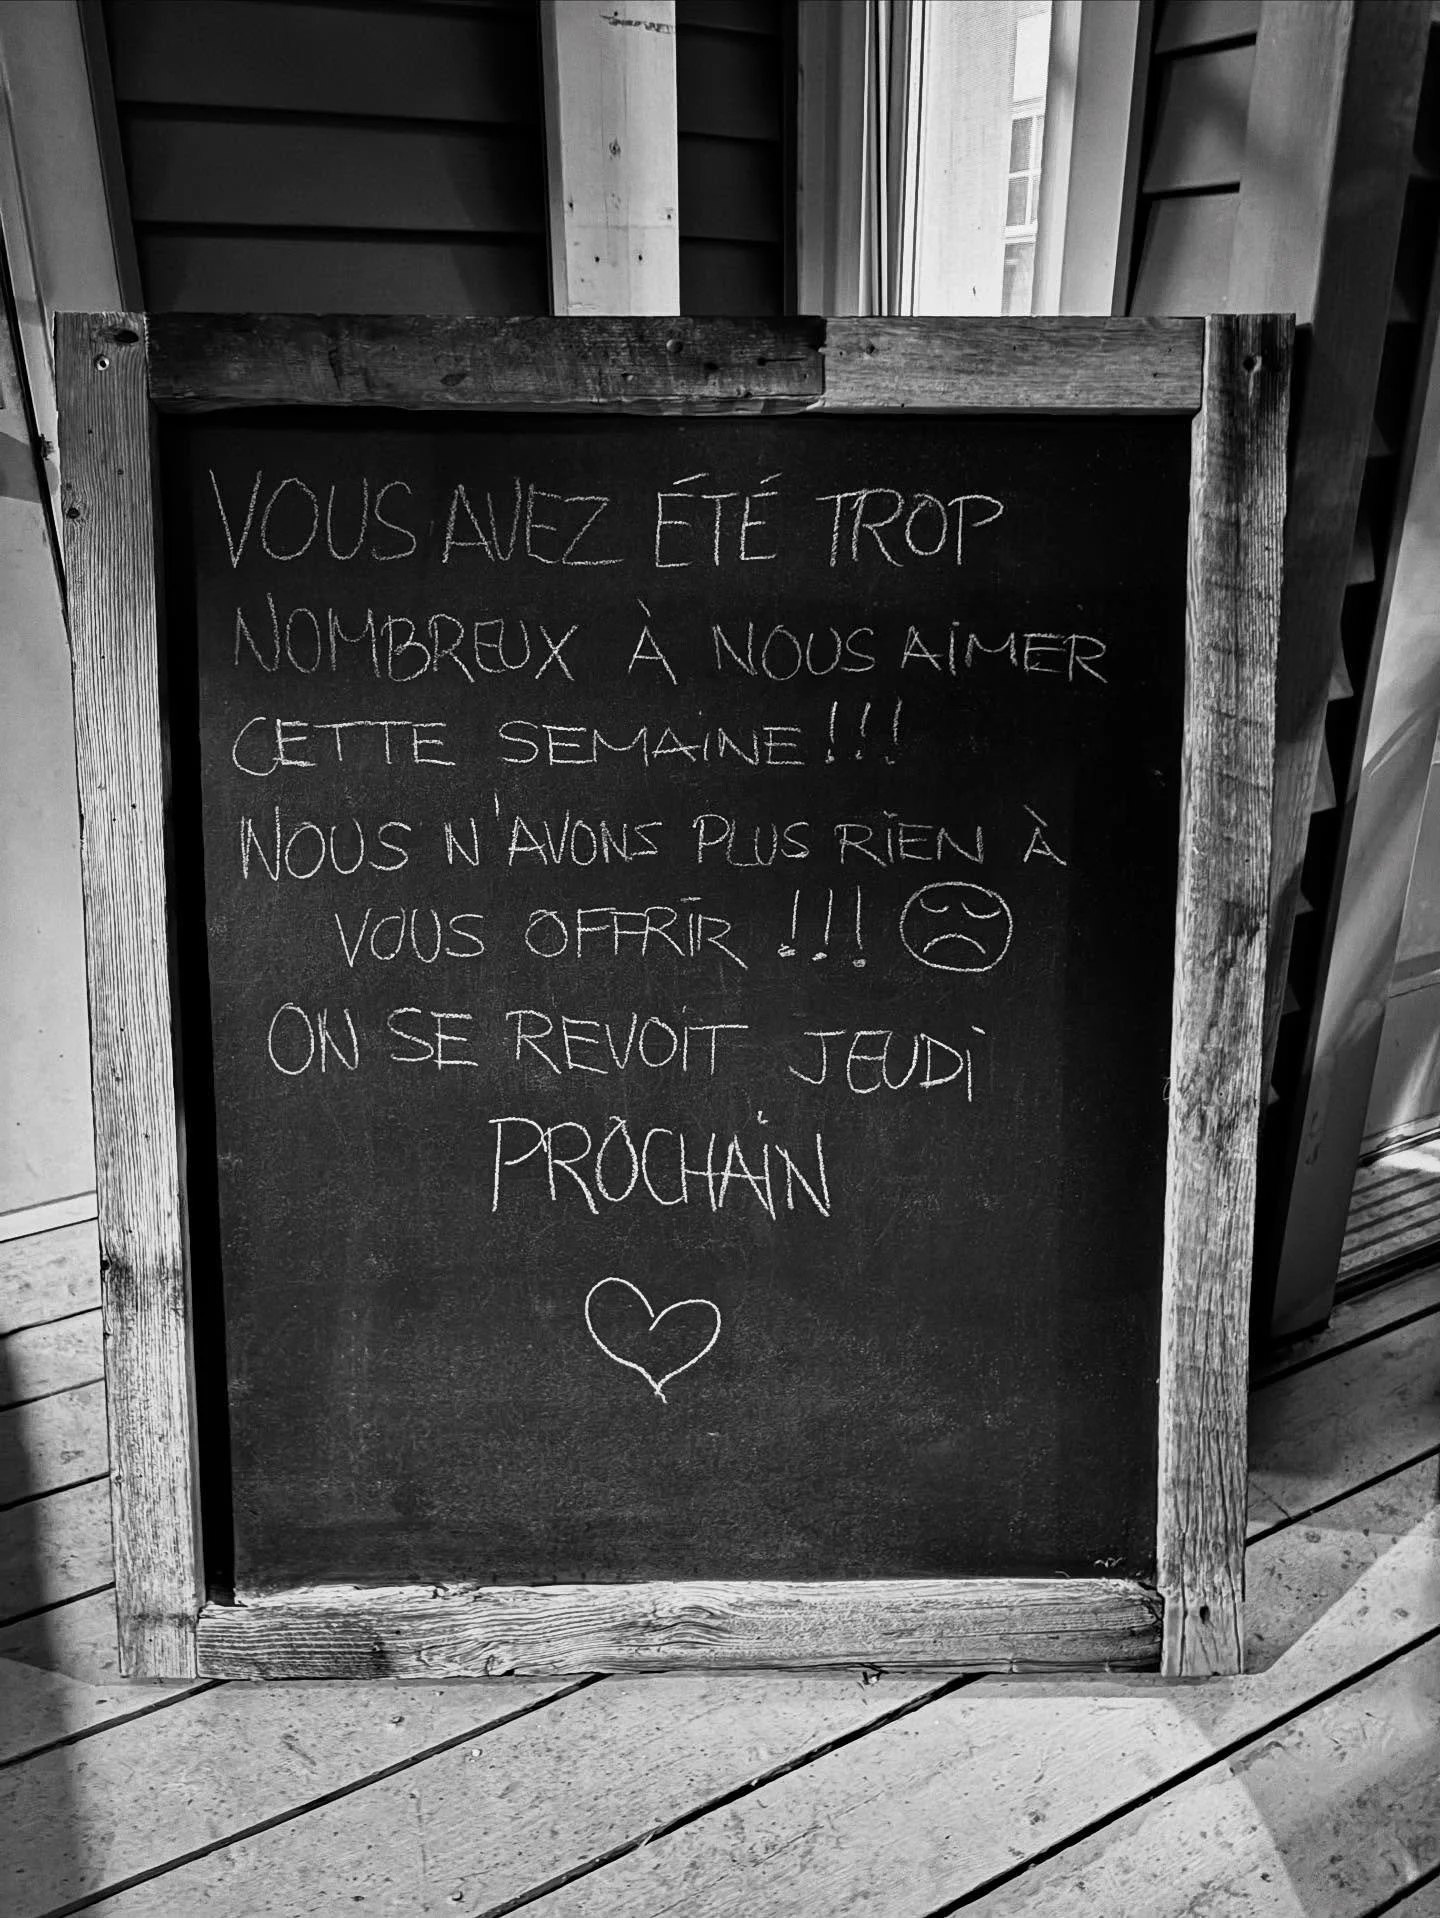 VOUS AVEZ ÉTÉ TROP
NOMBREUX À NOUS AIMER
CETTE SEMAINE!!!
NOUS N'AVONS PLUS RIEN À
VOUS OFFRIR !!!
ON SE REVOIT JEUDI
PROCHAIN